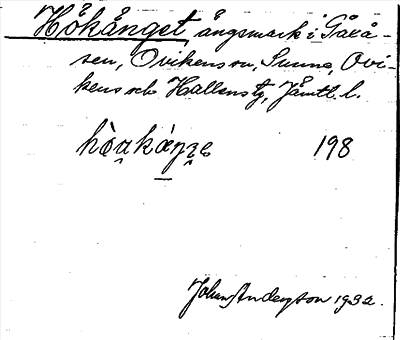 Hökånget ångsmark i Gåxå-
sen, Ovikens sn, Sunne, Ovi-
kens och Hallens tg, Jämtl. l.
198
Johan Anderzson 1932.